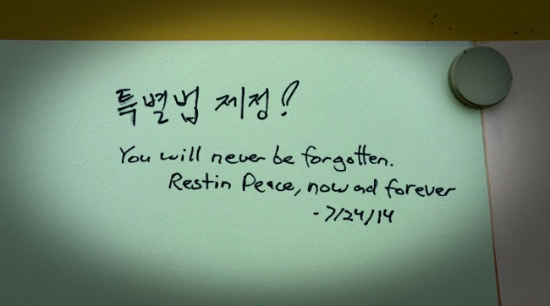 특별법 제정!
You will never be forgotten.
Rest in Peace, now and forever
- 7/24/14